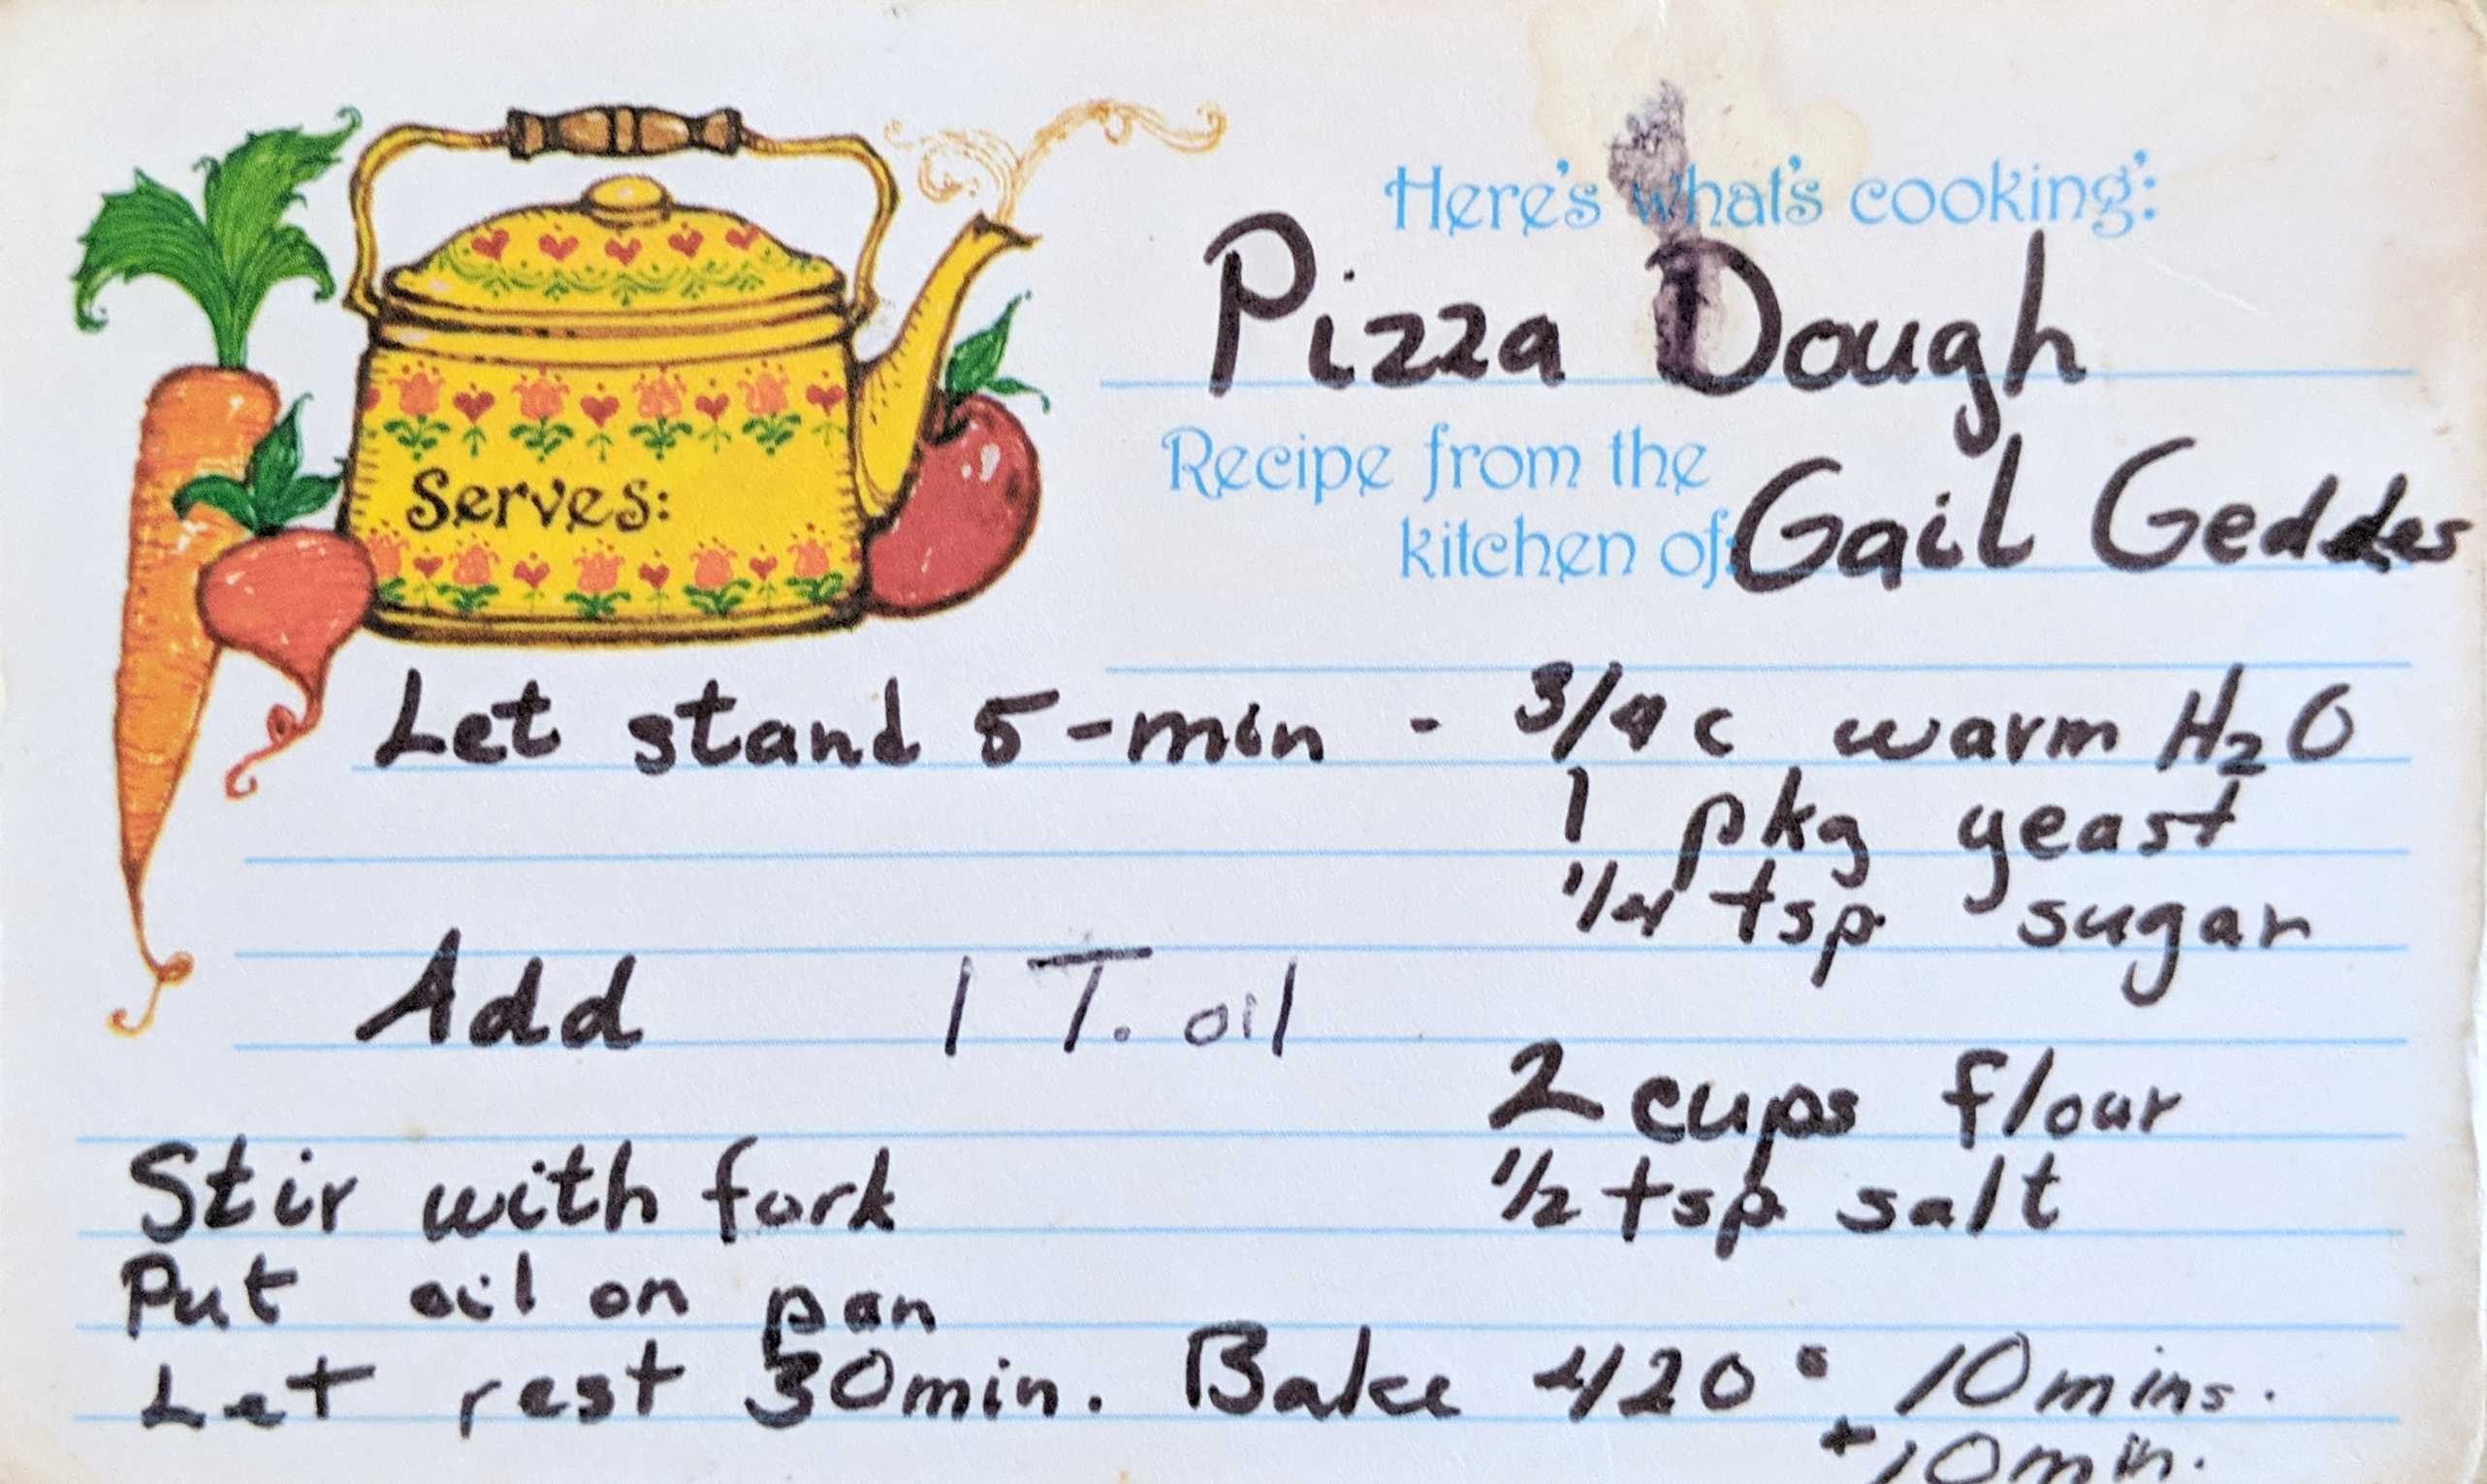 Here's what's cooking:
Pizza Dough
Recipe from the
kitchen of: Gail Geddes
Serves:
Let stand 5-min - 3/4 c warm H₂O
1 pkg yeast
1/4 tsp sugar
Add 1 T. oil
2 cups flour
Stir with fork 1/2 tsp salt
Put oil on pan
Let rest 30min. Bake 420° 10 mins.
+10min.